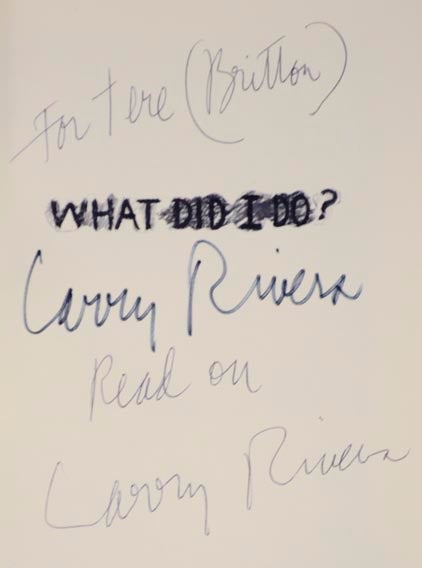 For Tere (Britton)
WHAT DID I DO?
Larry Rivers
Read on
Larry Rivers